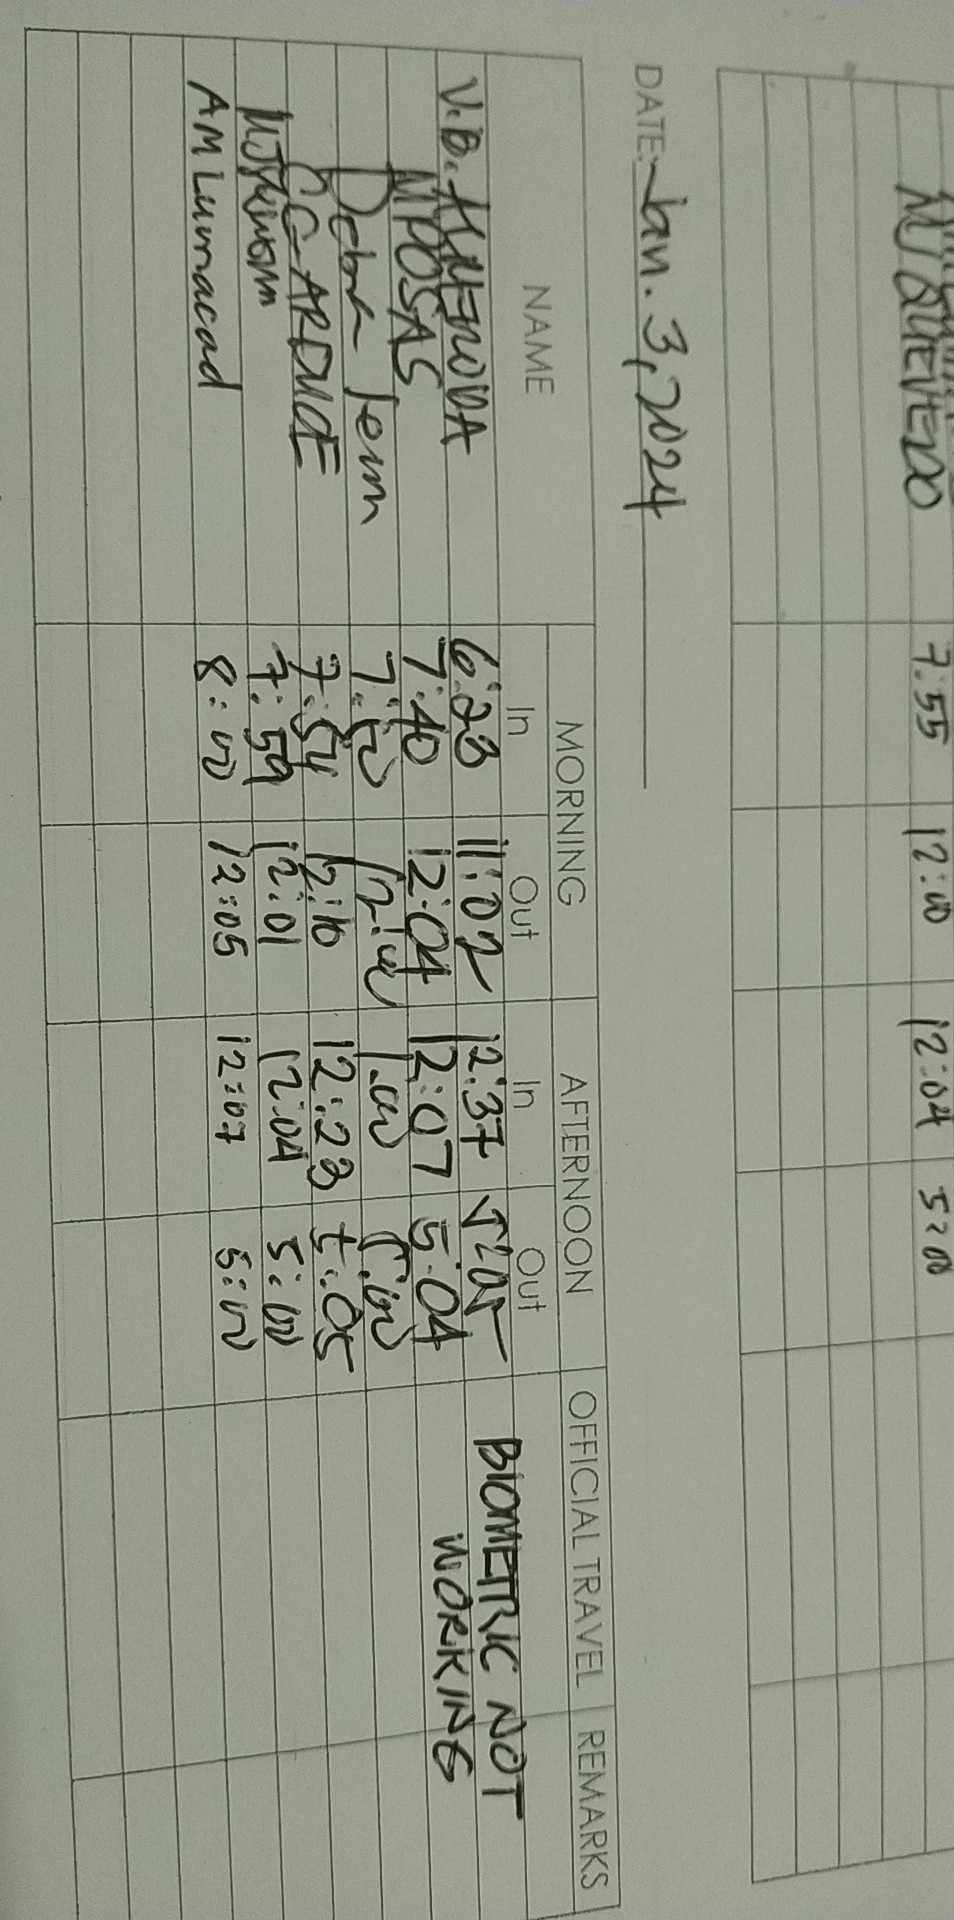 7:55 12:00 12:04 5:00
DATE: Jan. 3, 2024
NAME MORNING AFTERNOON OFFICIAL TRAVEL REMARKS
In Out In Out
V.B. 6:23 11:02 12:37 BIOMETRIC NOT
MPOSAS 7:40 12:04 12:07 5:04 WORKING
Debra Jenn 7:50 12:00 1:00 5:00
7:54 12:10 12:23 5:05
7:59 12:01 12:04 5:00
AM Lumacad 8:00 12:05 12:07 5:00